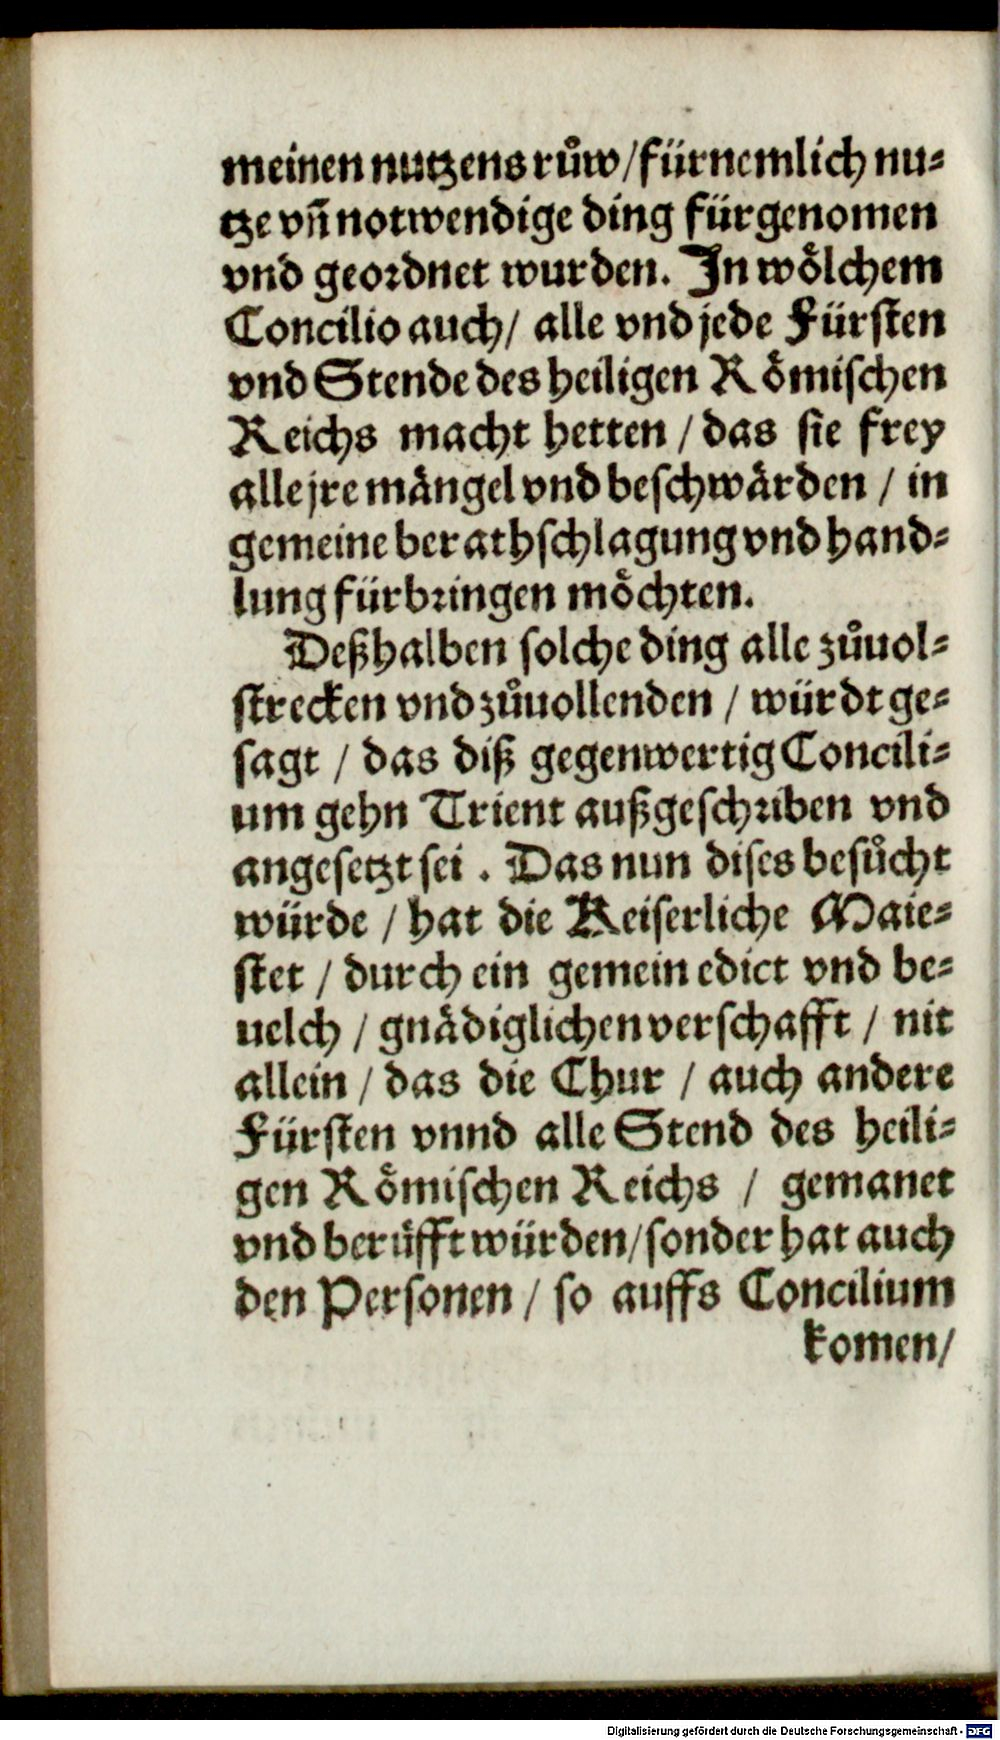 meinen nutzens růw / fürnemlich nu⸗
tze vñ notwendige ding fürgenomen
vnd geordnet wurden. In wölchem
Concilio auch / alle vnd jede Fürsten
vnd Stende des heiligen Römischen
Reichs macht hetten / das sie frey
alle jre mängel vnd beschwärden / in
gemeine berathschlagung vnd hand⸗
lung fürbringen möchten.
Deßhalben solche ding alle zůuol⸗
strecken vnd zůuollenden / würdt ge⸗
sagt / das diß gegenwertig Concili⸗
um gehn Trient außgeschriben vnd
angesetzt sei. Das nun dises besůcht
würde / hat die Keiserliche Maie⸗
stet / durch ein gemein edict vnd be⸗
uelch / gnädiglichen verschafft / nit
allein / das die Chur / auch andere
Fürsten vnnd alle Stend des heili⸗
gen Römischen Reichs / gemanet
vnd berüfft würden / sonder hat auch
den Personen / so auffs Concilium
komen /
Digitalisierung gefördert durch die Deutsche Forschungsgemeinschaft - DFG